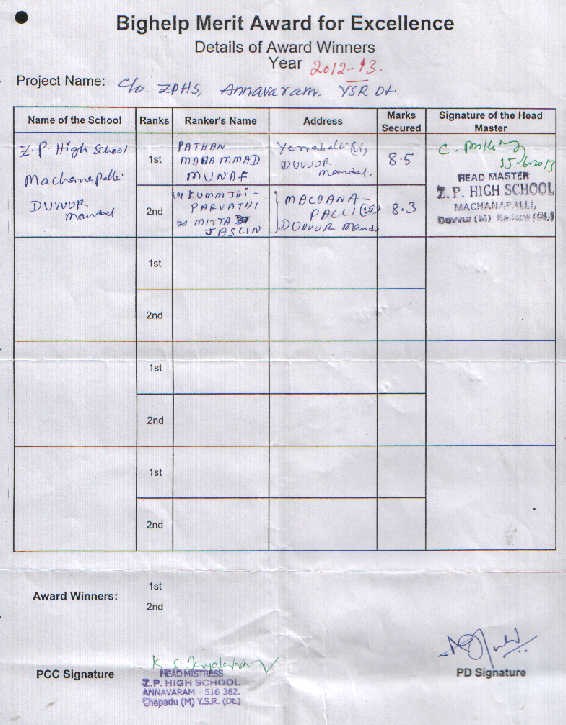 Bighelp Merit Award for Excellence
Details of Award Winners
Year 2012-13.
Project Name: C/o ZPHS, Annavaram. YSR Dt.
Name of the School Ranks Ranker's Name Address Marks Secured Signature of the Head Master
Z.P. High School
Machanapalli
DUVVUR
Mandal
1st
PATHAN
MAHAMMAD
MUNAF
DUVVUR
Mandal.
8.5
15-6-2013
HEAD MASTER
Z.P. HIGH SCHOOL
MACHANAPALLI,
Duvvur (M)
2nd
PARVATHI
JASLIN
MACHANA-
PALLI
DUVVUR Mandal
8.3
1st
2nd
1st
2nd
1st
2nd
Award Winners:
1st
2nd
PCC Signature
HEADMISTRESS
Z.P. HIGH SCHOOL
ANNAVARAM - 516 362.
Chapadu (M) Y.S.R. (Dt.)
PD Signature